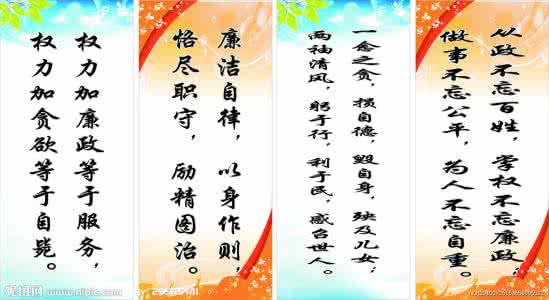 权力加廉政等于服务，
权力加贪欲等于自毙。
廉洁自律，以身作则，
恪尽职守，励精图治。
一念之贪，损自德，毁自身，殃及儿女；
两袖清风，躬于行，利于民，感召世人。
从政不忘百姓，掌权不忘廉政；
做事不忘公平，为人不忘自重。
昵图网 www.nipic.com